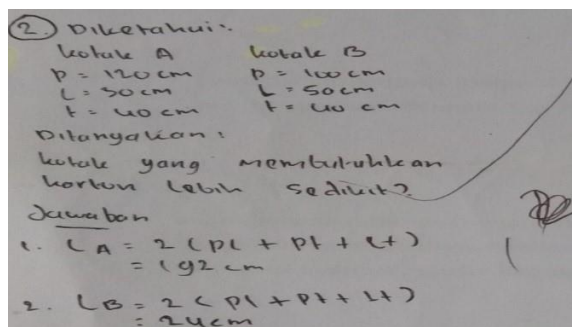 2. Diketahui:
Kotak A Kotak B
P = 120 cm P = 100 cm
L = 50 cm L = 50 cm
t = 40 cm t = 40 cm
Ditanyakan:
kotak yang membutuhkan
karton lebih sedikit?
Jawaban
1. LA = 2 (pl + pt + lt)
= 192 cm
2. LB = 2 (pl + pt + lt)
= 24cm